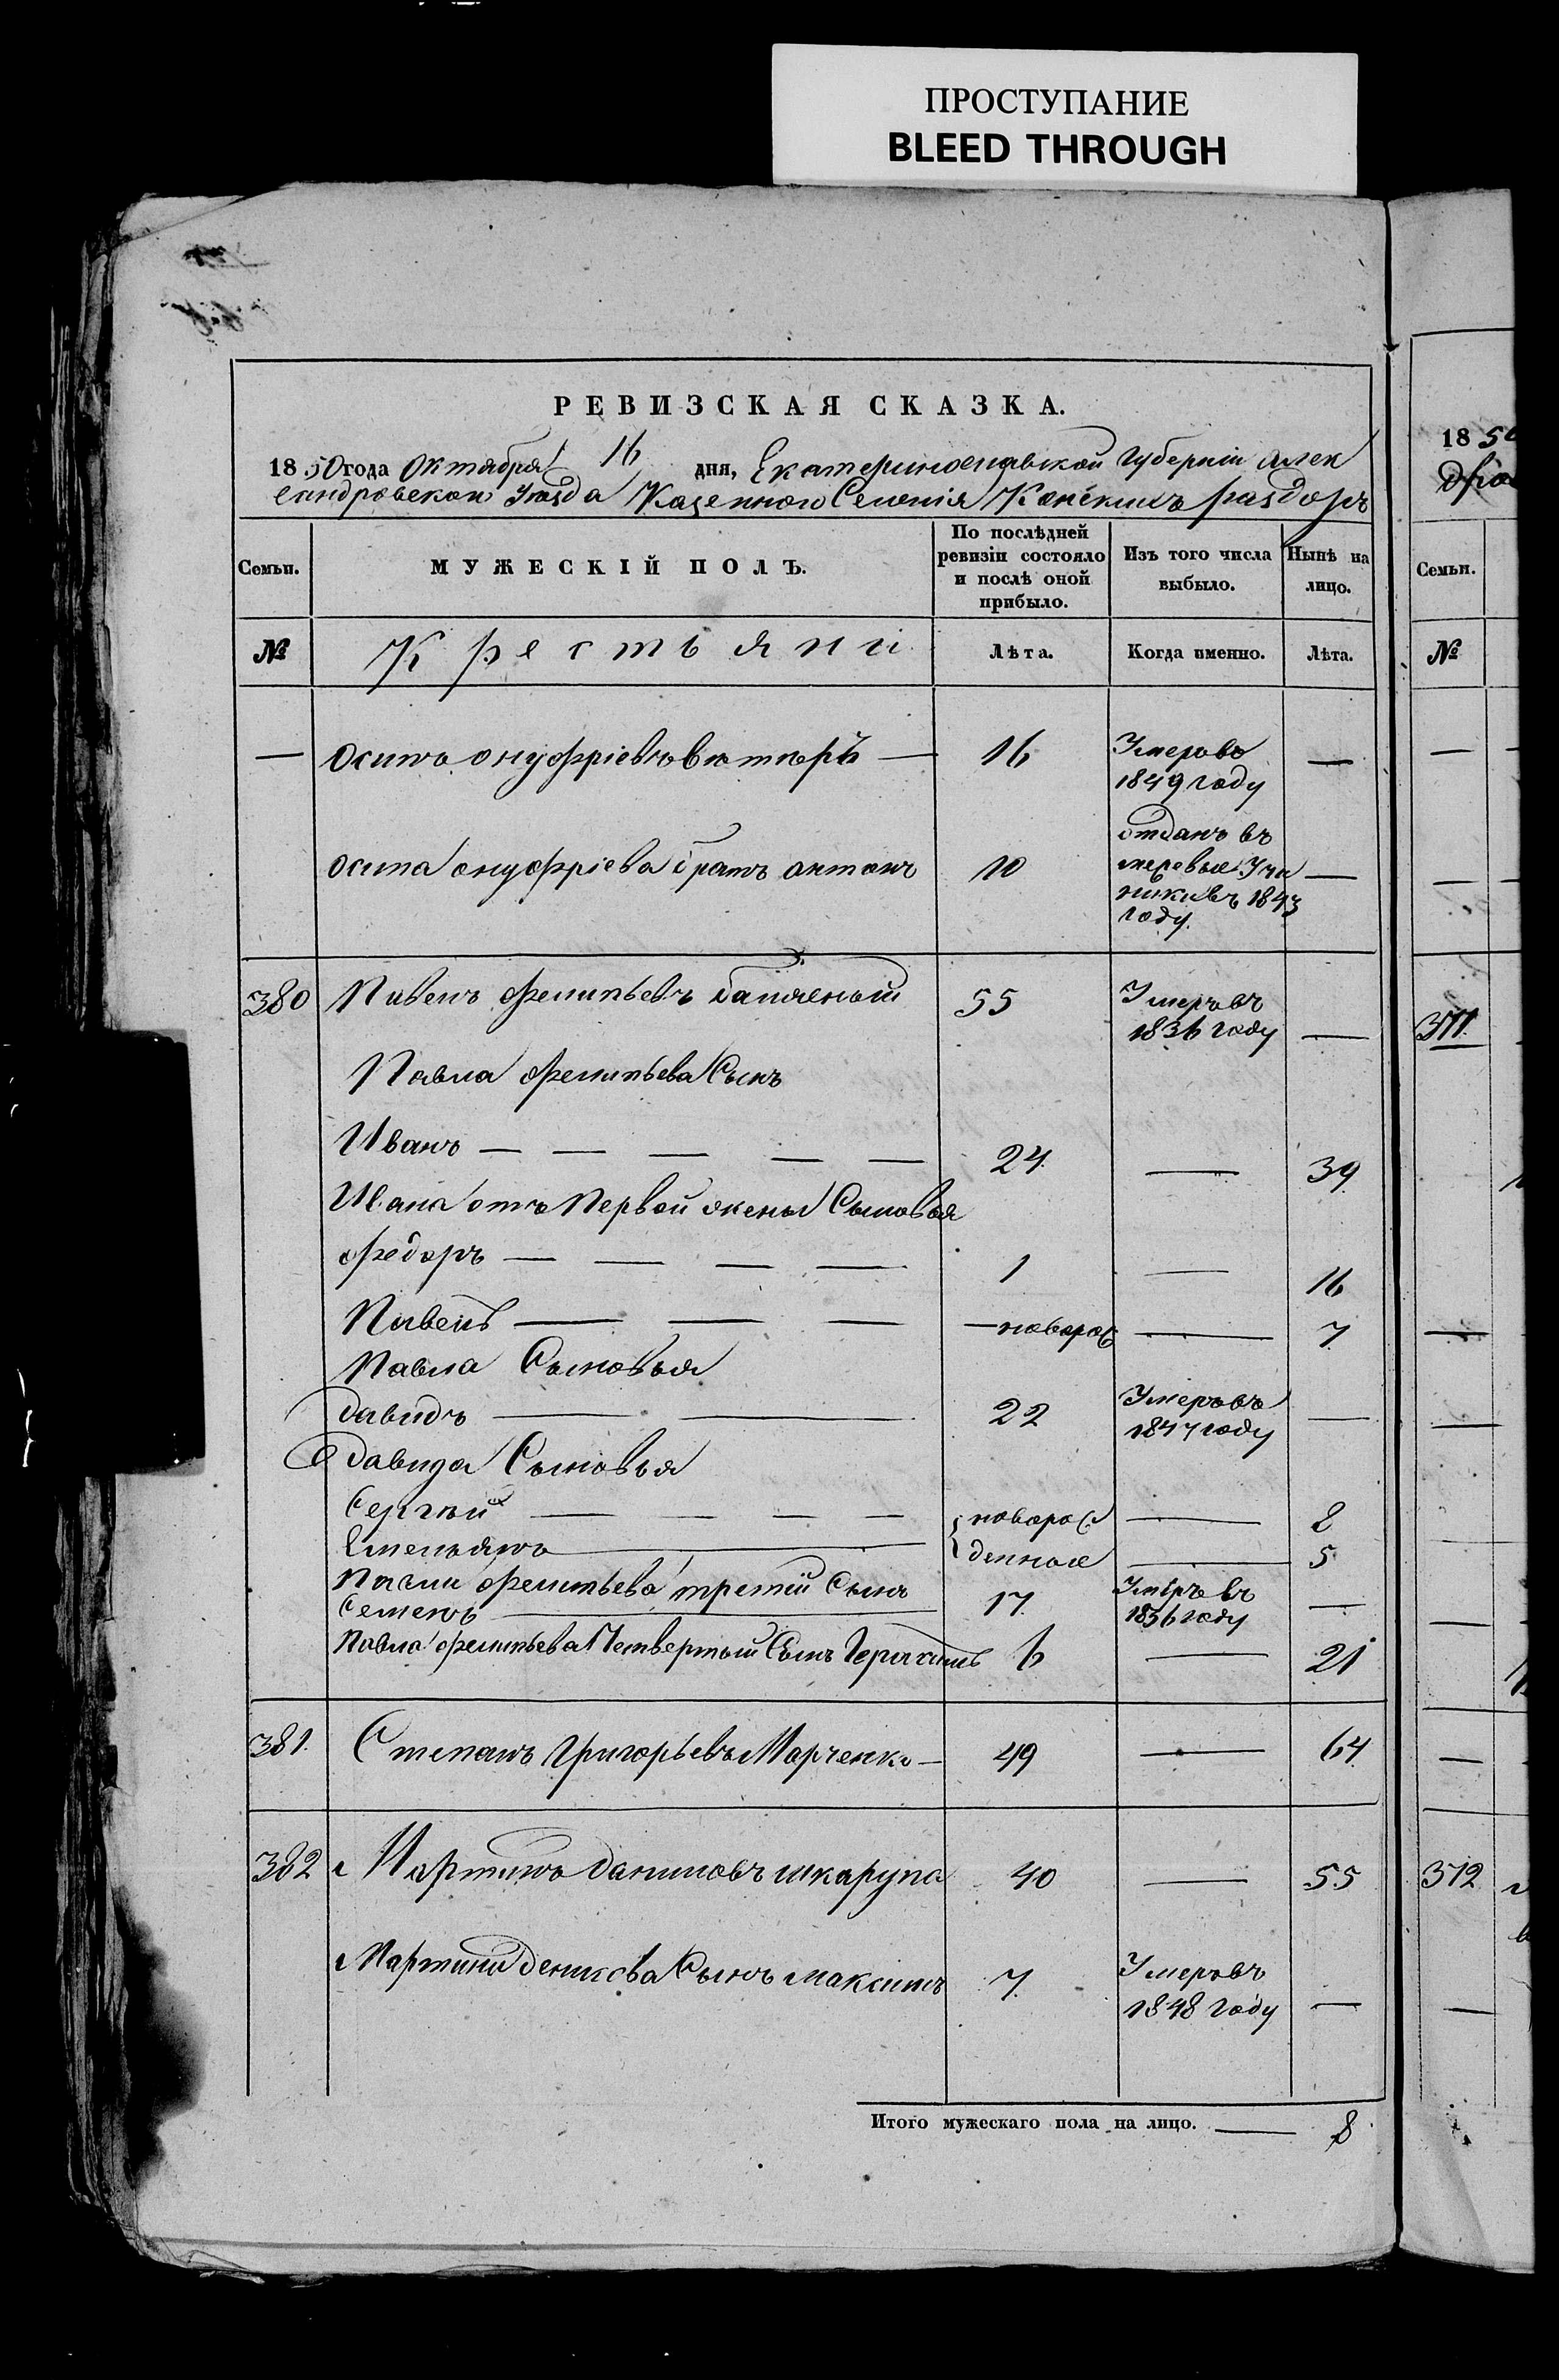 ПРОСТУПАНИЕ
BLEED THROUGH
РЕВИЗСКАЯ СКАЗКА.
1850 года Октября 16 дня, Екатеринославской Губерніи Алек
сандровскаго Уезда Казенного Селенія Конскихъ раздоръ
Семьи.
МУЖЕСКІЙ ПОЛЪ.
По послѣдней ревизіи состояло и послѣ оной прибыло.
Изъ того числа выбыло.
Нынѣ на лицо.
№
Крестьяни
Лѣта.
Когда именно.
Лѣта.
— Осипъ онуфріевъ — 16 Умеръ въ 1849 году —
осипа онуфріева братъ антонъ 10 отданъ въ 1843 году. —
380 Павелъ филипьевъ 55 Умеръ въ 1836 году —
Павла филипьева Сынъ
Иванъ — — — — — 24 — 39
Ивана отъ Первой жены Сыновья
федоръ — — — — 1 — 16
Павелъ — — — новорож — 7
Павла Сыновья
давидъ — — 22 Умеръ въ 1847 году —
Давида Сыновья
Сергѣй — — — — новорож — 8
Емельянъ — денные — 5
Павла филипьева третій Сынъ
Семенъ — 17 Умеръ въ 1836 году —
Павла филипьева Четвертый Сынъ Герасимъ 6 — 21
381. Степанъ Григорьевъ Марченко — 49 — 64
382 Мартинъ даниловъ шкарупа 40 — 55
Мартина Сынъ максимъ 7 Умеръ въ 1848 году —
Итого мужескаго пола на лицо. — 8
1850
Семьи.
№
371
372